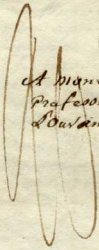 A Mons
Professe
Louvain